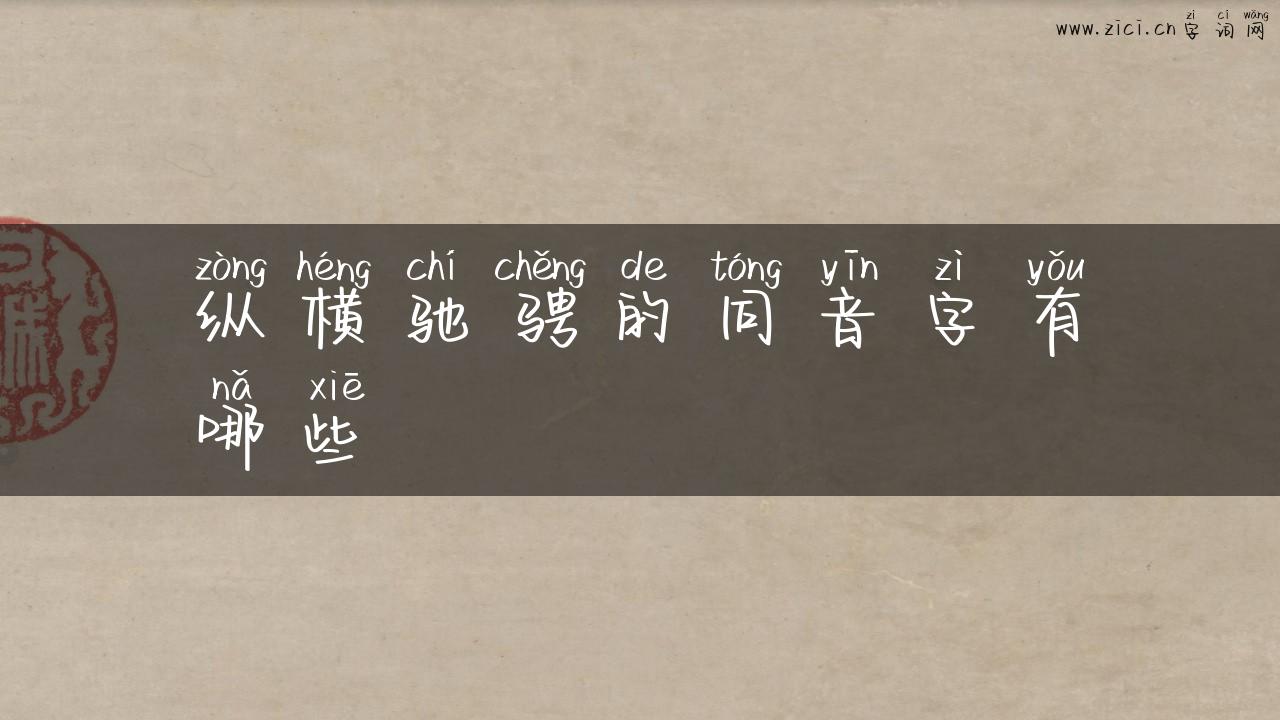 zì cí wǎng
www.zici.cn 字词网
zòng héng chí chěng de tóng yīn zì yǒu
纵横驰骋的同音字有
nǎ xiē
哪些